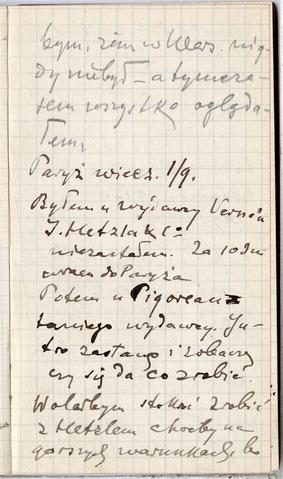 bym, żem w Wars. nig-
dy nie był – a tymcza-
sem wszystko ogląda-
łem,
Paryż wiecz. 1/9.
Byłem u wydawcy Verne'a
J. Hetzla & Co
nie zastałem. Za 10 dni
wraca do Paryża
Potem u Pigoreau
taniego wydawcy. Ju-
tro zastanę i zobaczę
czy się da co zrobić.
Wolałbym zrobić
z Hetzlem choćby na
gorszych warunkach, bo